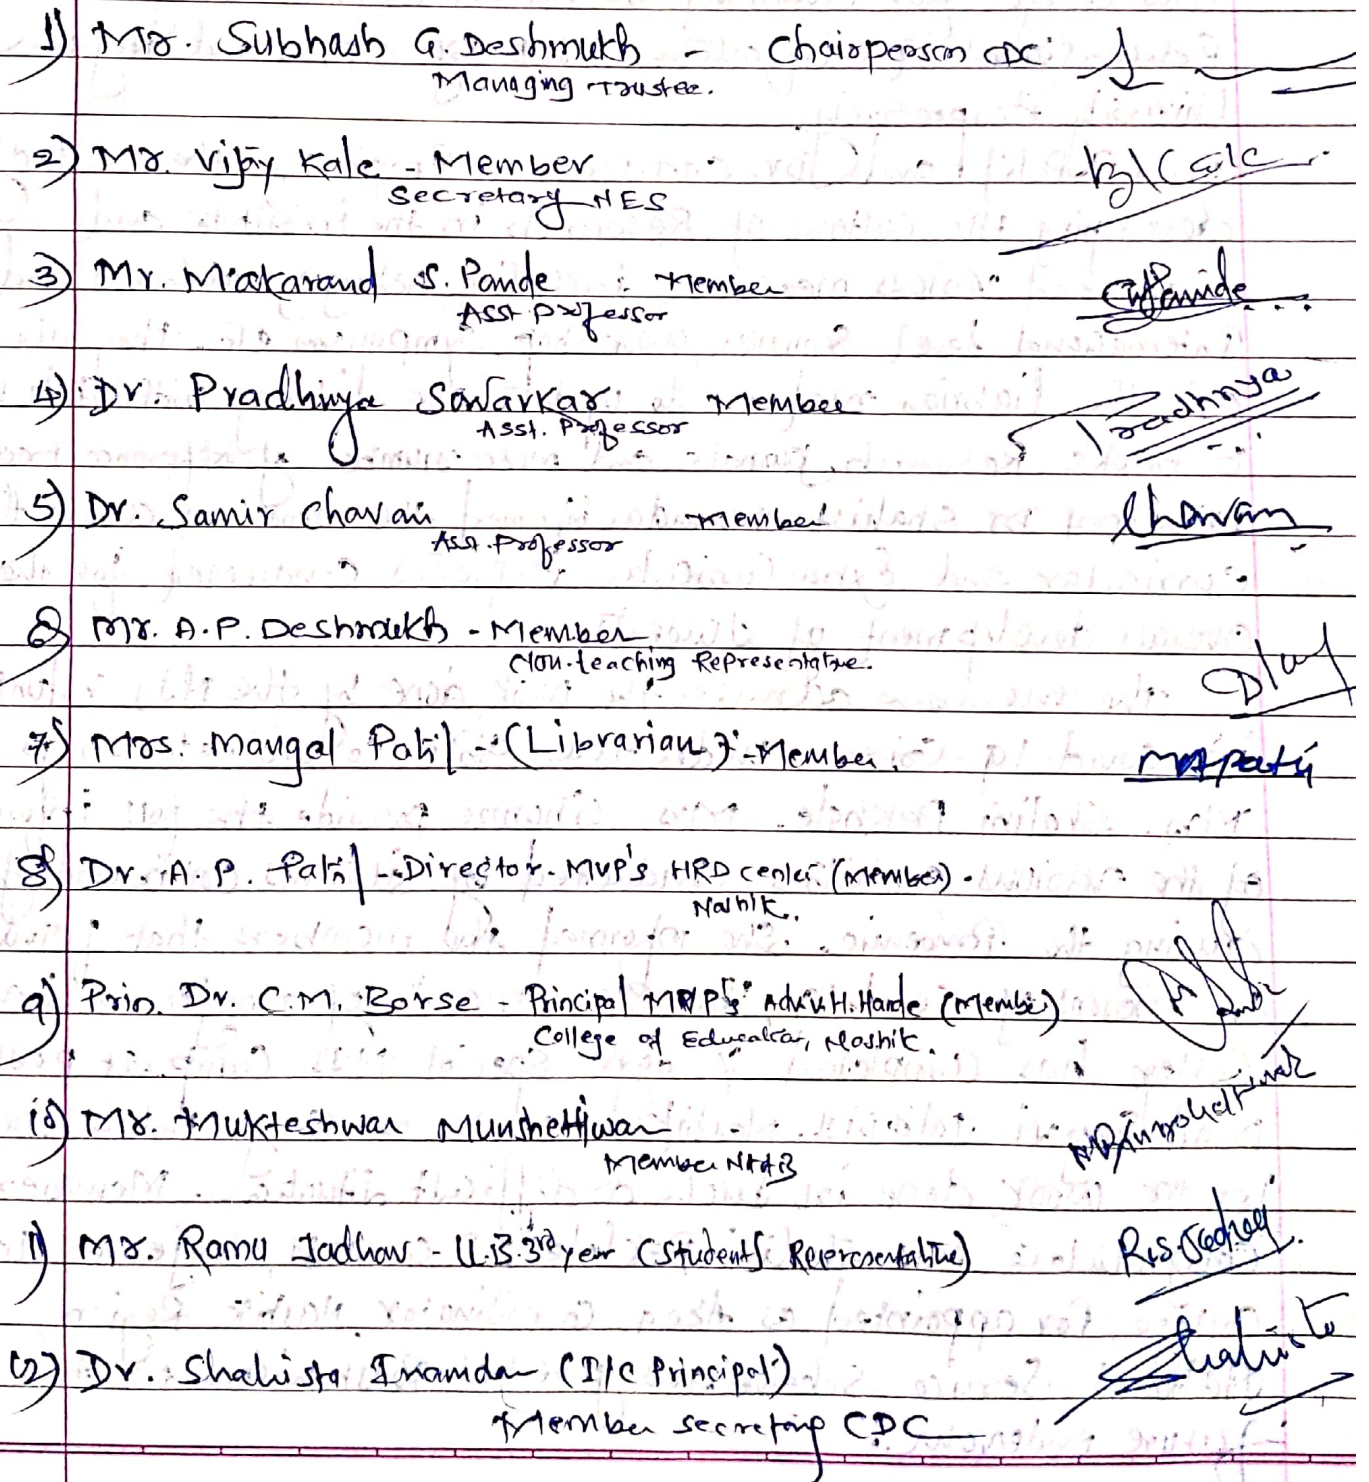 1) Mr. Subhash G. Deshmukh - Chairperson CDC
Managing Trustee.
2) Mr. Vijay Kale - Member
Secretary NES
3) Mr. Makarand S. Pande : Member
Asst Professor
4) Dr. Pradhnya Sawarkar Member Pradhnya
Asst. Professor
5) Dr. Samir Chavan : Member Chavan
Asst. Professor
6) Mr. A.P. Deshmukh - Member
Non-teaching Representative.
7) Mrs. Mangal Patil - (Librarian) - Member.
8) Dr. A. P. Patil - Director. MVP's HRD center. (Member).
Nashik.
9) Prin. Dr. C.M. Borse - Principal MVP's Adv. V.H. Hande (Member)
College of Education, Nashik.
10) Mr. Mukteshwar Munshettiwar
Member
11) Mr. Ramu Jadhav - LL.B 3rd year (Students Representative) R.S. Jadhav
12) Dr. Shahista Inamdar (I/C Principal) Shahista
Member secretary CDC